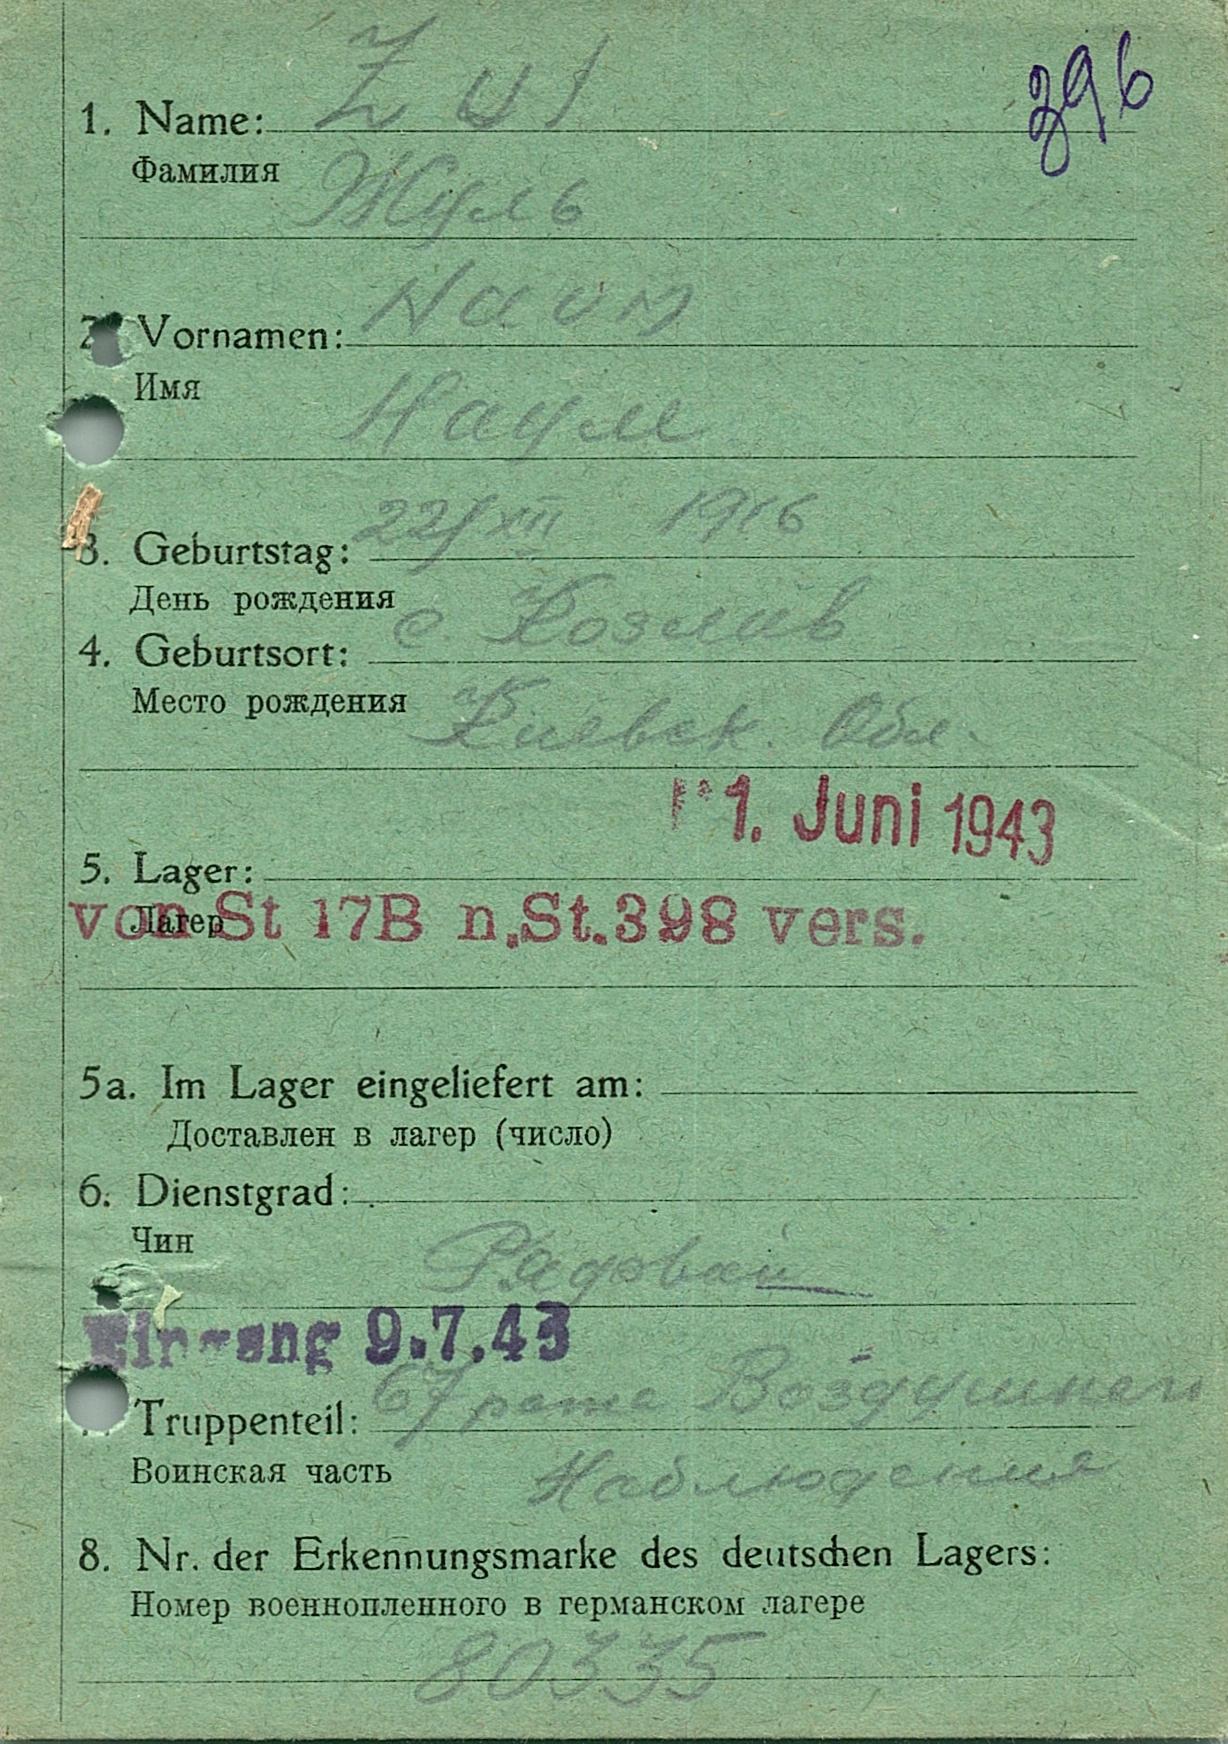 396
Zul
1. Name:
Фамилия
Жуль
Naum
2. Vornamen:
Имя
Наум
22/XII 1916
3. Geburtstag:
День рождения
с Козлив
4. Geburtsort:
Место рождения
Киевск. Обл.
1. Juni 1943
5. Lager:
Лагер
von St 17B n.St.398 vers.
5a. Im Lager eingeliefert am:
Доставлен в лагер (число)
6. Dienstgrad:
Чин
Рядовой
Eingang 9.7.43
67 рота Воздушного
Truppenteil:
Воинская часть
Наблюдения
8. Nr. der Erkennungsmarke des deutschen Lagers:
Номер военнопленного в германском лагере
80335